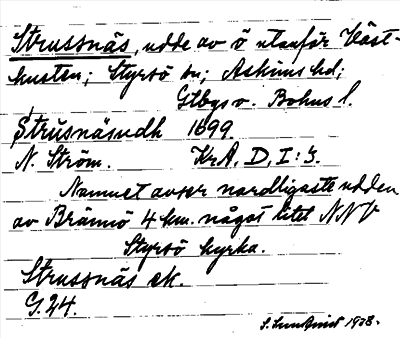 Strussnäs, udde av ö utanför Väst-
kusten; Styrsö sn; Askims hd;
Gtbgs o. Bohus l.
Strusnäsudh 1699.
N. Ström. KrA, D, I: 3.
Namnet avser nordligaste udden
av Brännö 4 km. något litet NNV
Styrsö kyrka.
Strussnäs ek.
G. 24.
1928.